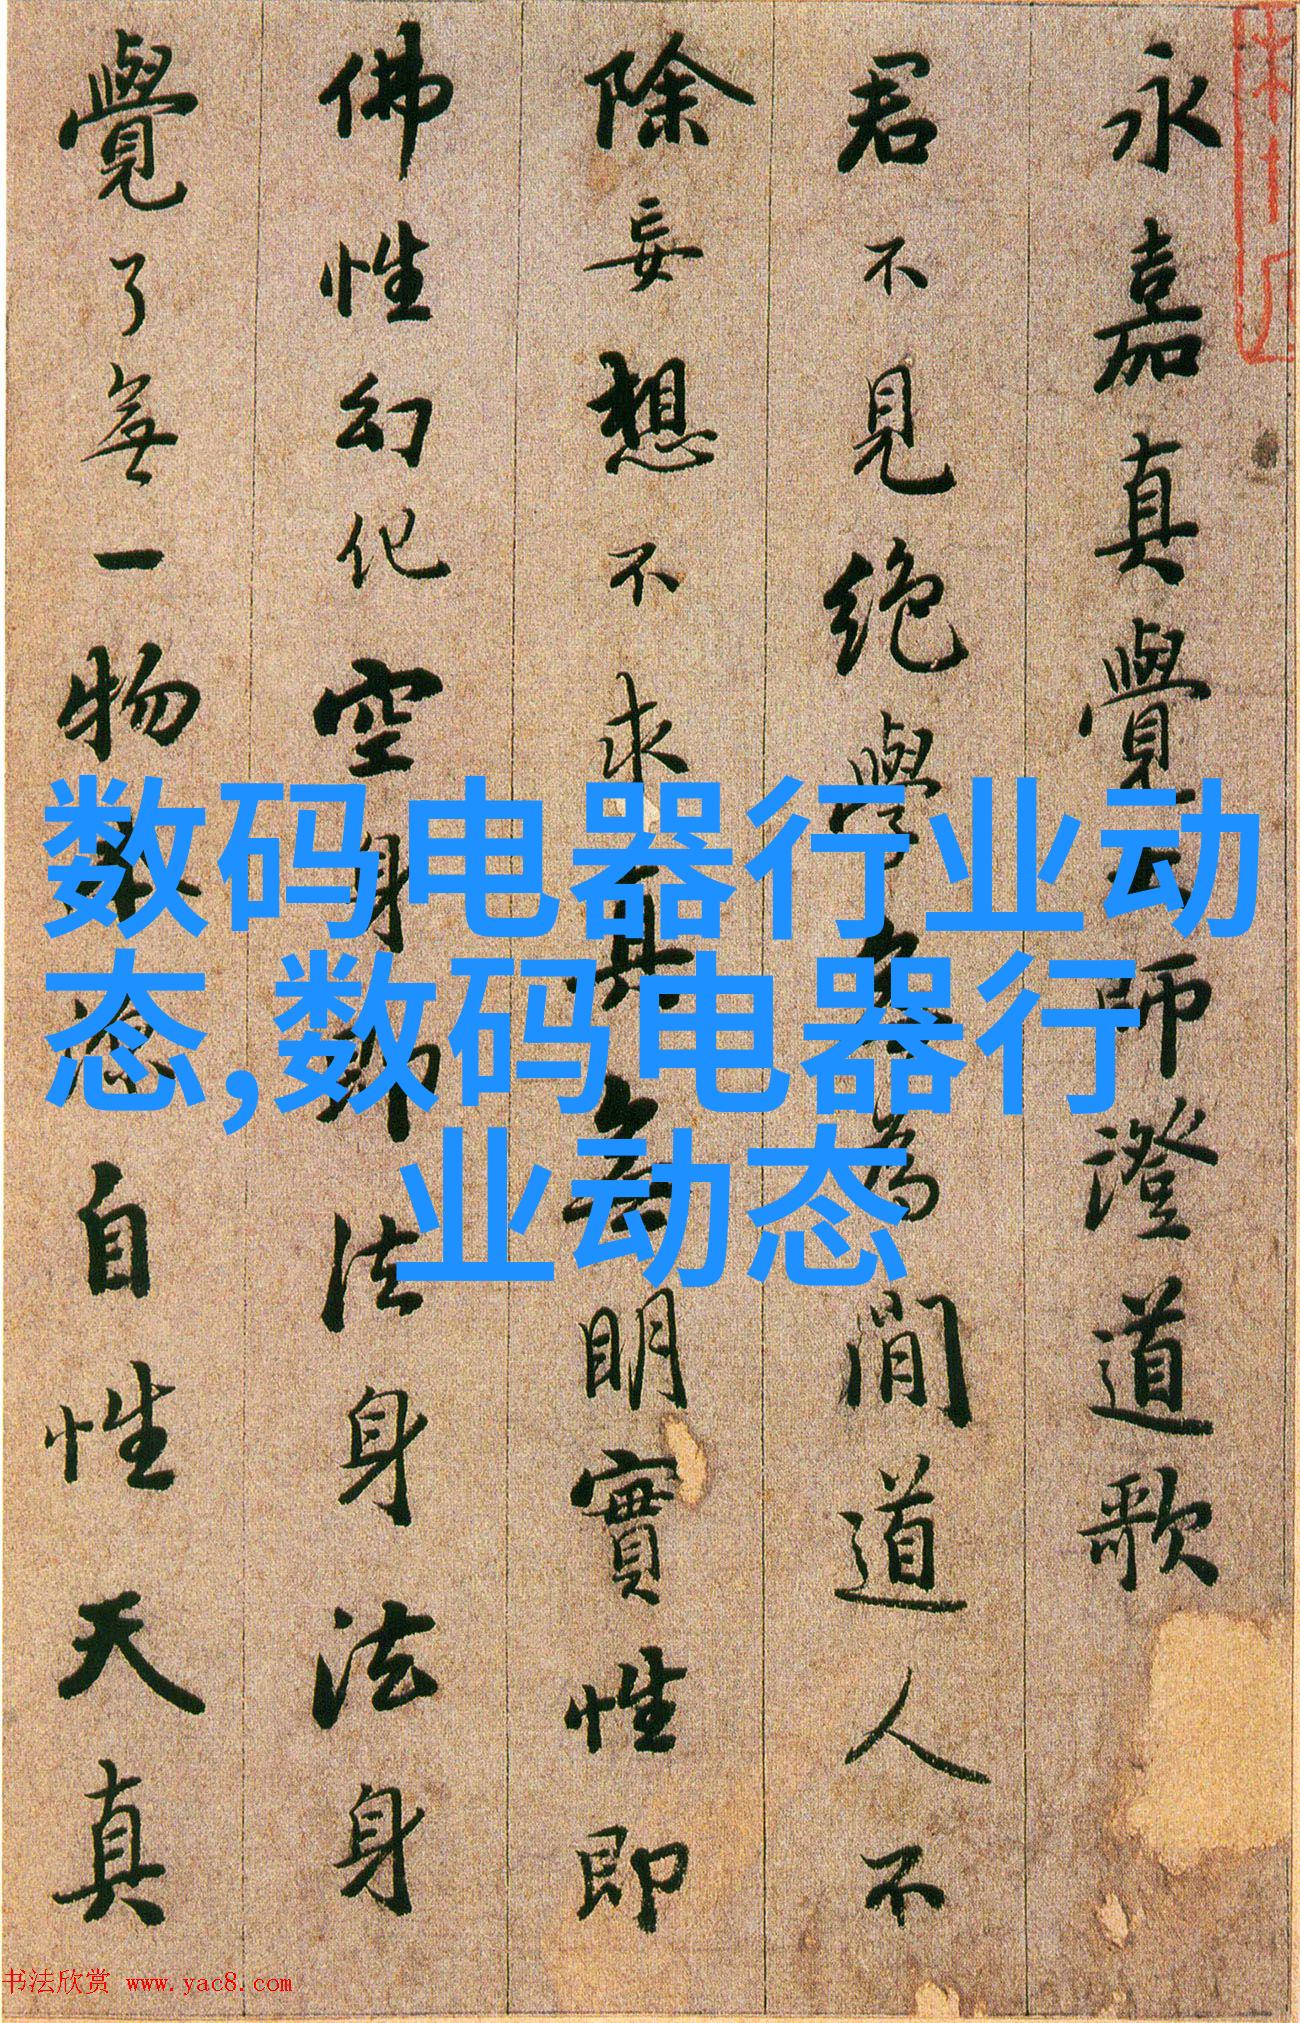 永嘉真覺大師澄道歌
君不見絕學無為閒道人不
除妄想不求真無明實性即
佛性幻化空身即法身法身
覺了無一物本源自性天真
数码电器行业动
态,数码电器行
业动态
书法欣赏 www.yac8.com